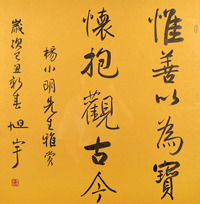 惟善以為寶
懷抱觀古今
楊小明先生雅赏
歲次己丑新春 旭宇